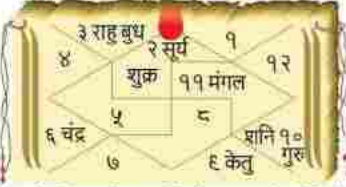 ३ राहु बुध
२ सूर्य
१
४
शुक्र
११ मंगल
१२
५
८
६ चंद्र
शनि १०
गुरु
७
९ केतु